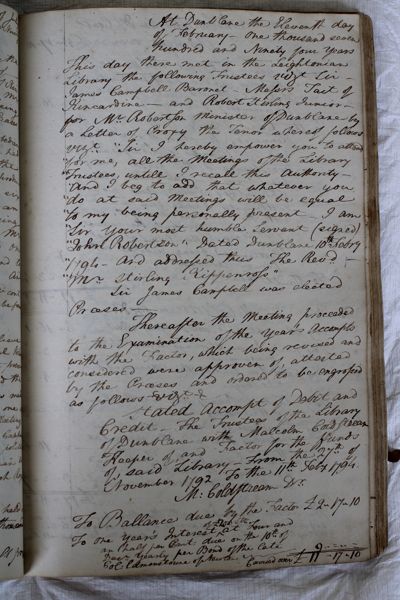 At Dunblane the Eleventh day
of February One thousand seven
hundred and Ninety four Years
This day there met in the Leightonian
Library the following Trustees vizt Sir
James Campbell Baronet Messrs Tait of
Kencardine and Robert Stirling Junior
for Mr Robertson Minister of Dunblane by
a letter of Proxy the Tenor whereof follows
vizt "Sir I hereby empower you to attend
"for me, all the Meetings of the Library
"Trustees, untill I recall this Authority—
"And I beg to add that whatever you
"do at said Meetings will be equal
"to my being personally present I am
"Sir Your most humble Servant (signed)
"John Robertson" Dated Dunblane 10th Febry
"1794 And addressed thus "The Revd
"Mr Stirling Kippenross"
Sir James Campbell was elected
Preases
Thereafter the Meeting proceeded
to the Examination of the Years Accompts
with the Factor, which being revised and
considered were approven of, attested
by the Preases and ordered to be engrossed
as follows vizt
Stated Accompt of Debit and
Credit The Trustees of the Library
of Dunblane with Malcolm Coldstream
Keeper of and Factor for the Funds
of said Library From the 27th of
November 1792 To the 11th Feby 1794
M: Coldstream Dr
To Ballance due by the Factor £2-17-10
To one years Interest at four and
an half per Cent due on the 10th of
per Bond of the late
Col: Edmonstoune of
Carried over £ -17-10